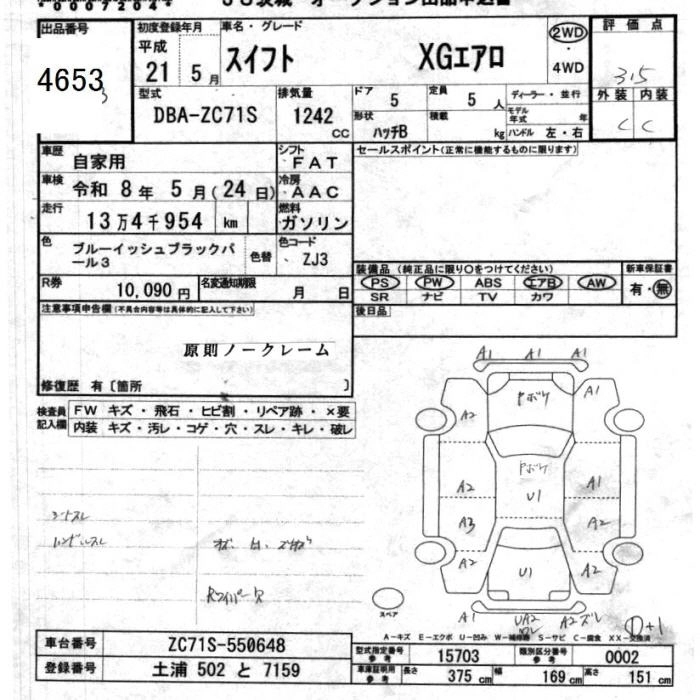 出品番号
4653
3
初度登録年月
平成
21 5月
車名・グレード
スイフト XGエアロ
2WD
・
4WD
評価点
3.5
外装 内装
C C
型式
DBA-ZC71S
排気量
1242
CC
ドア
5
定員
5人
形状
ハッチB
積載
kg
ディーラー・並行
モデル年式 年
ハンドル 左・右
車歴
自家用
シフト
FAT
車検
令和 8年 5月(24日)
冷房
AAC
走行
13万4千954 km
燃料
ガソリン
色
ブルーイッシュブラックパール3
色替
色コード
ZJ3
R券
10,090円
名変通知期限
月 日
セールスポイント(正常に機能するものに限ります)
装備品 (純正品に限り○をつけてください)
PS PW ABS エアB AW
SR ナビ TV カワ
新車保証書
有・無
後日品
注意事項申告欄(不具合内容等は具体的に記入して下さい)
原則ノークレーム
修復歴 有〔箇所 〕
検査員記入欄
FW キズ・飛石・ヒビ割・リペア跡・×要
内装 キズ・汚レ・コゲ・穴・スレ・キレ・破レ
シートスレ
ハンドルスレ
Rワイパー欠
A1 A1 A1
A2 Pボケ A1
Pボケ
A2 U1 A1
A3 A2
A2 U1 A2
スペア
A1 UA2 A2 ズレ
ワレ
①+1
A-キズ E-エクボ U-凹み W-補修跡 S-サビ C-腐食 XX-交換済
車台番号
ZC71S-550648
登録番号
土浦 502 と 7159
型式指定番号
参考
15703
類別区分番号
参考
0002
車庫証明用
参考
長さ 375 cm 幅 169 cm 高さ 151 cm